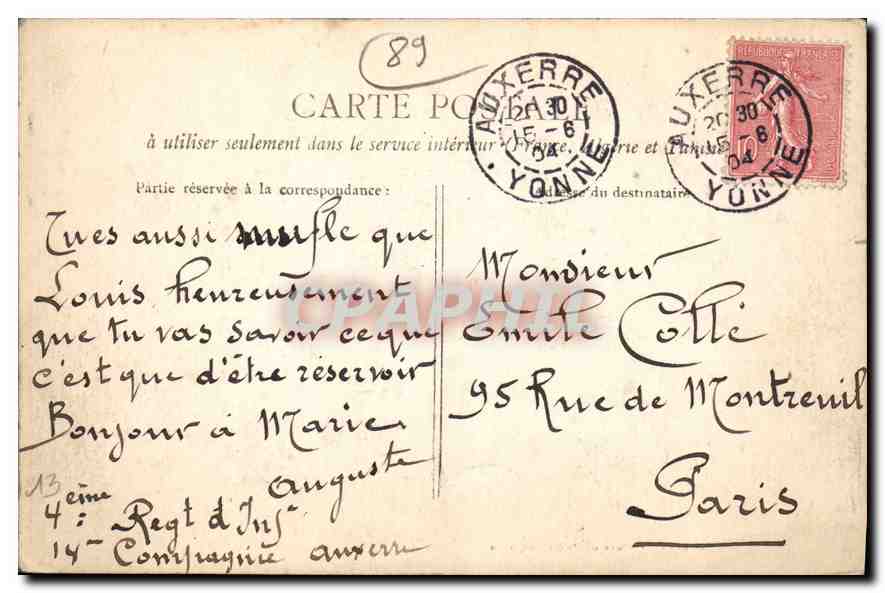 89
CARTE POSTALE
à utiliser seulement dans le service intérieur (France, Algérie et Tunisie
Partie réservée à la correspondance :
Adresse du destinataire
AUXERRE
20 30
15 - 6
04
YONNE
AUXERRE
20 30
15 - 6
04
YONNE
REPUBLIQUE FRANCAISE
10
Tu es aussi mufle que
Louis heureusement
que tu vas savoir ce que
c'est que d'être réservoir
Bonjour à Marie.
Auguste
13
4eme Regt d'Inf
14me Compagnie auxerre
Monsieur
Emile Collé
95 Rue de Montreuil
Paris
CPAPHIL